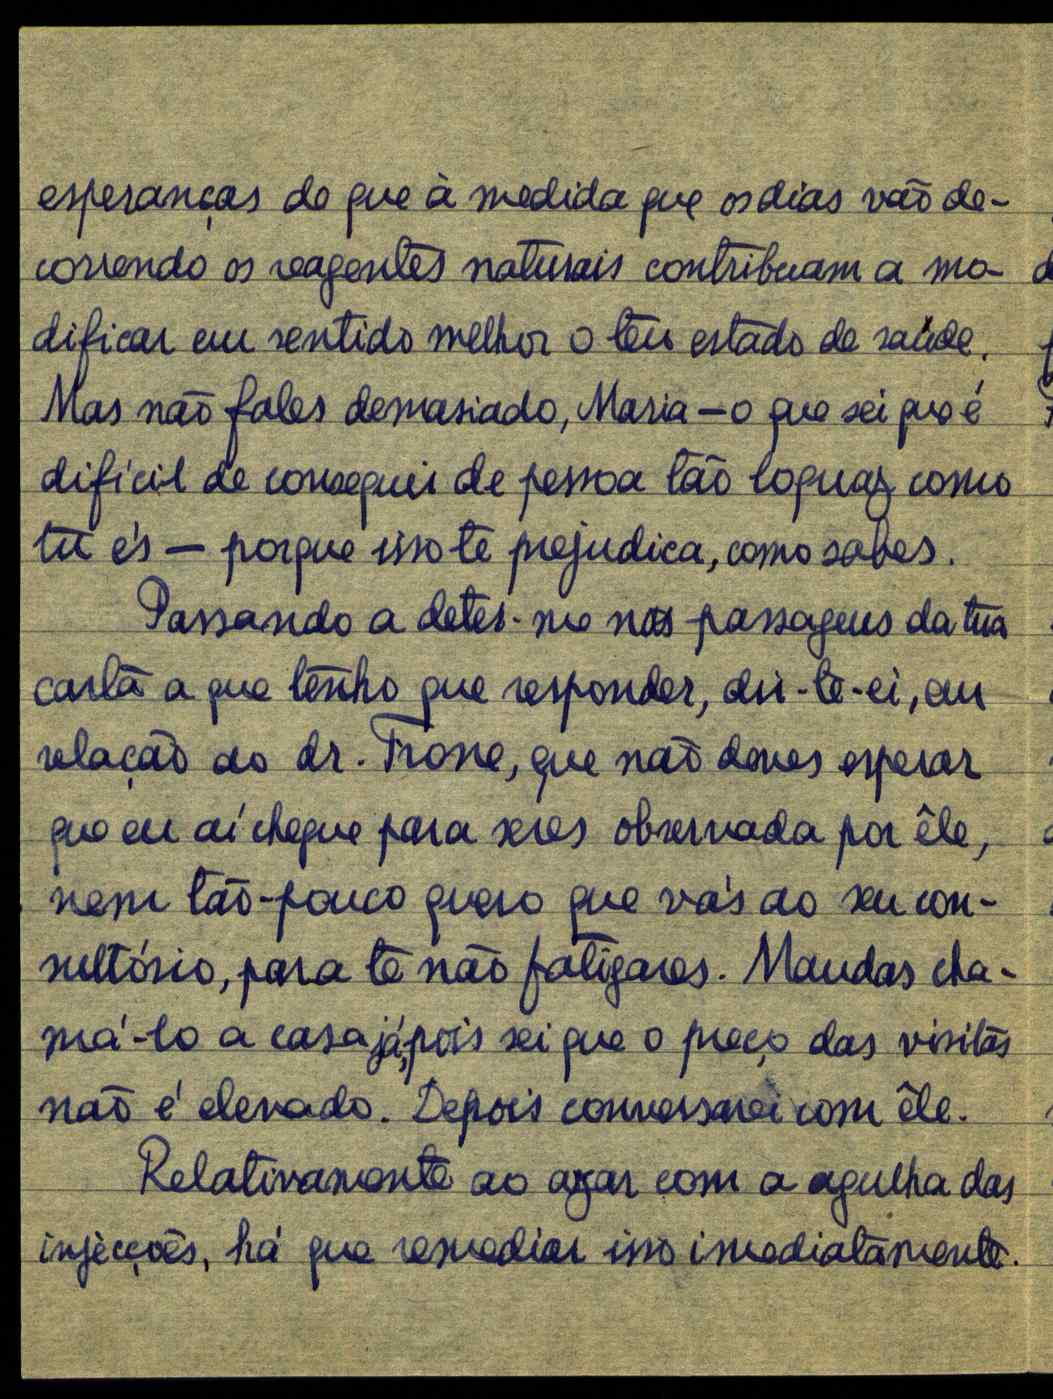 esperanças de que à medida que os dias vão de-
correndo os reagentes naturais contribuam a mo-
dificar em sentido melhor o teu estado de saúde.
Mas não fales demasiado, Maria — o que sei que é
difícil de conseguir de pessoa tão loquaz como
tu és — porque isso te prejudica, como sabes.
Passando a deter-me nas passagens da tua
carta a que tenho que responder, dir-te-ei, em
relação ao dr. Trone, que não deves esperar
que eu aí chegue para seres observada por êle,
nem tão-pouco quero que vás ao seu con-
sultório, para te não fatigares. Mandas cha-
má-lo a casa já, pois sei que o preço das visitas
não é elevado. Depois conversarei com êle.
Relativamente ao azar com a agulha das
injècções, há que remediar isso imediatamente.